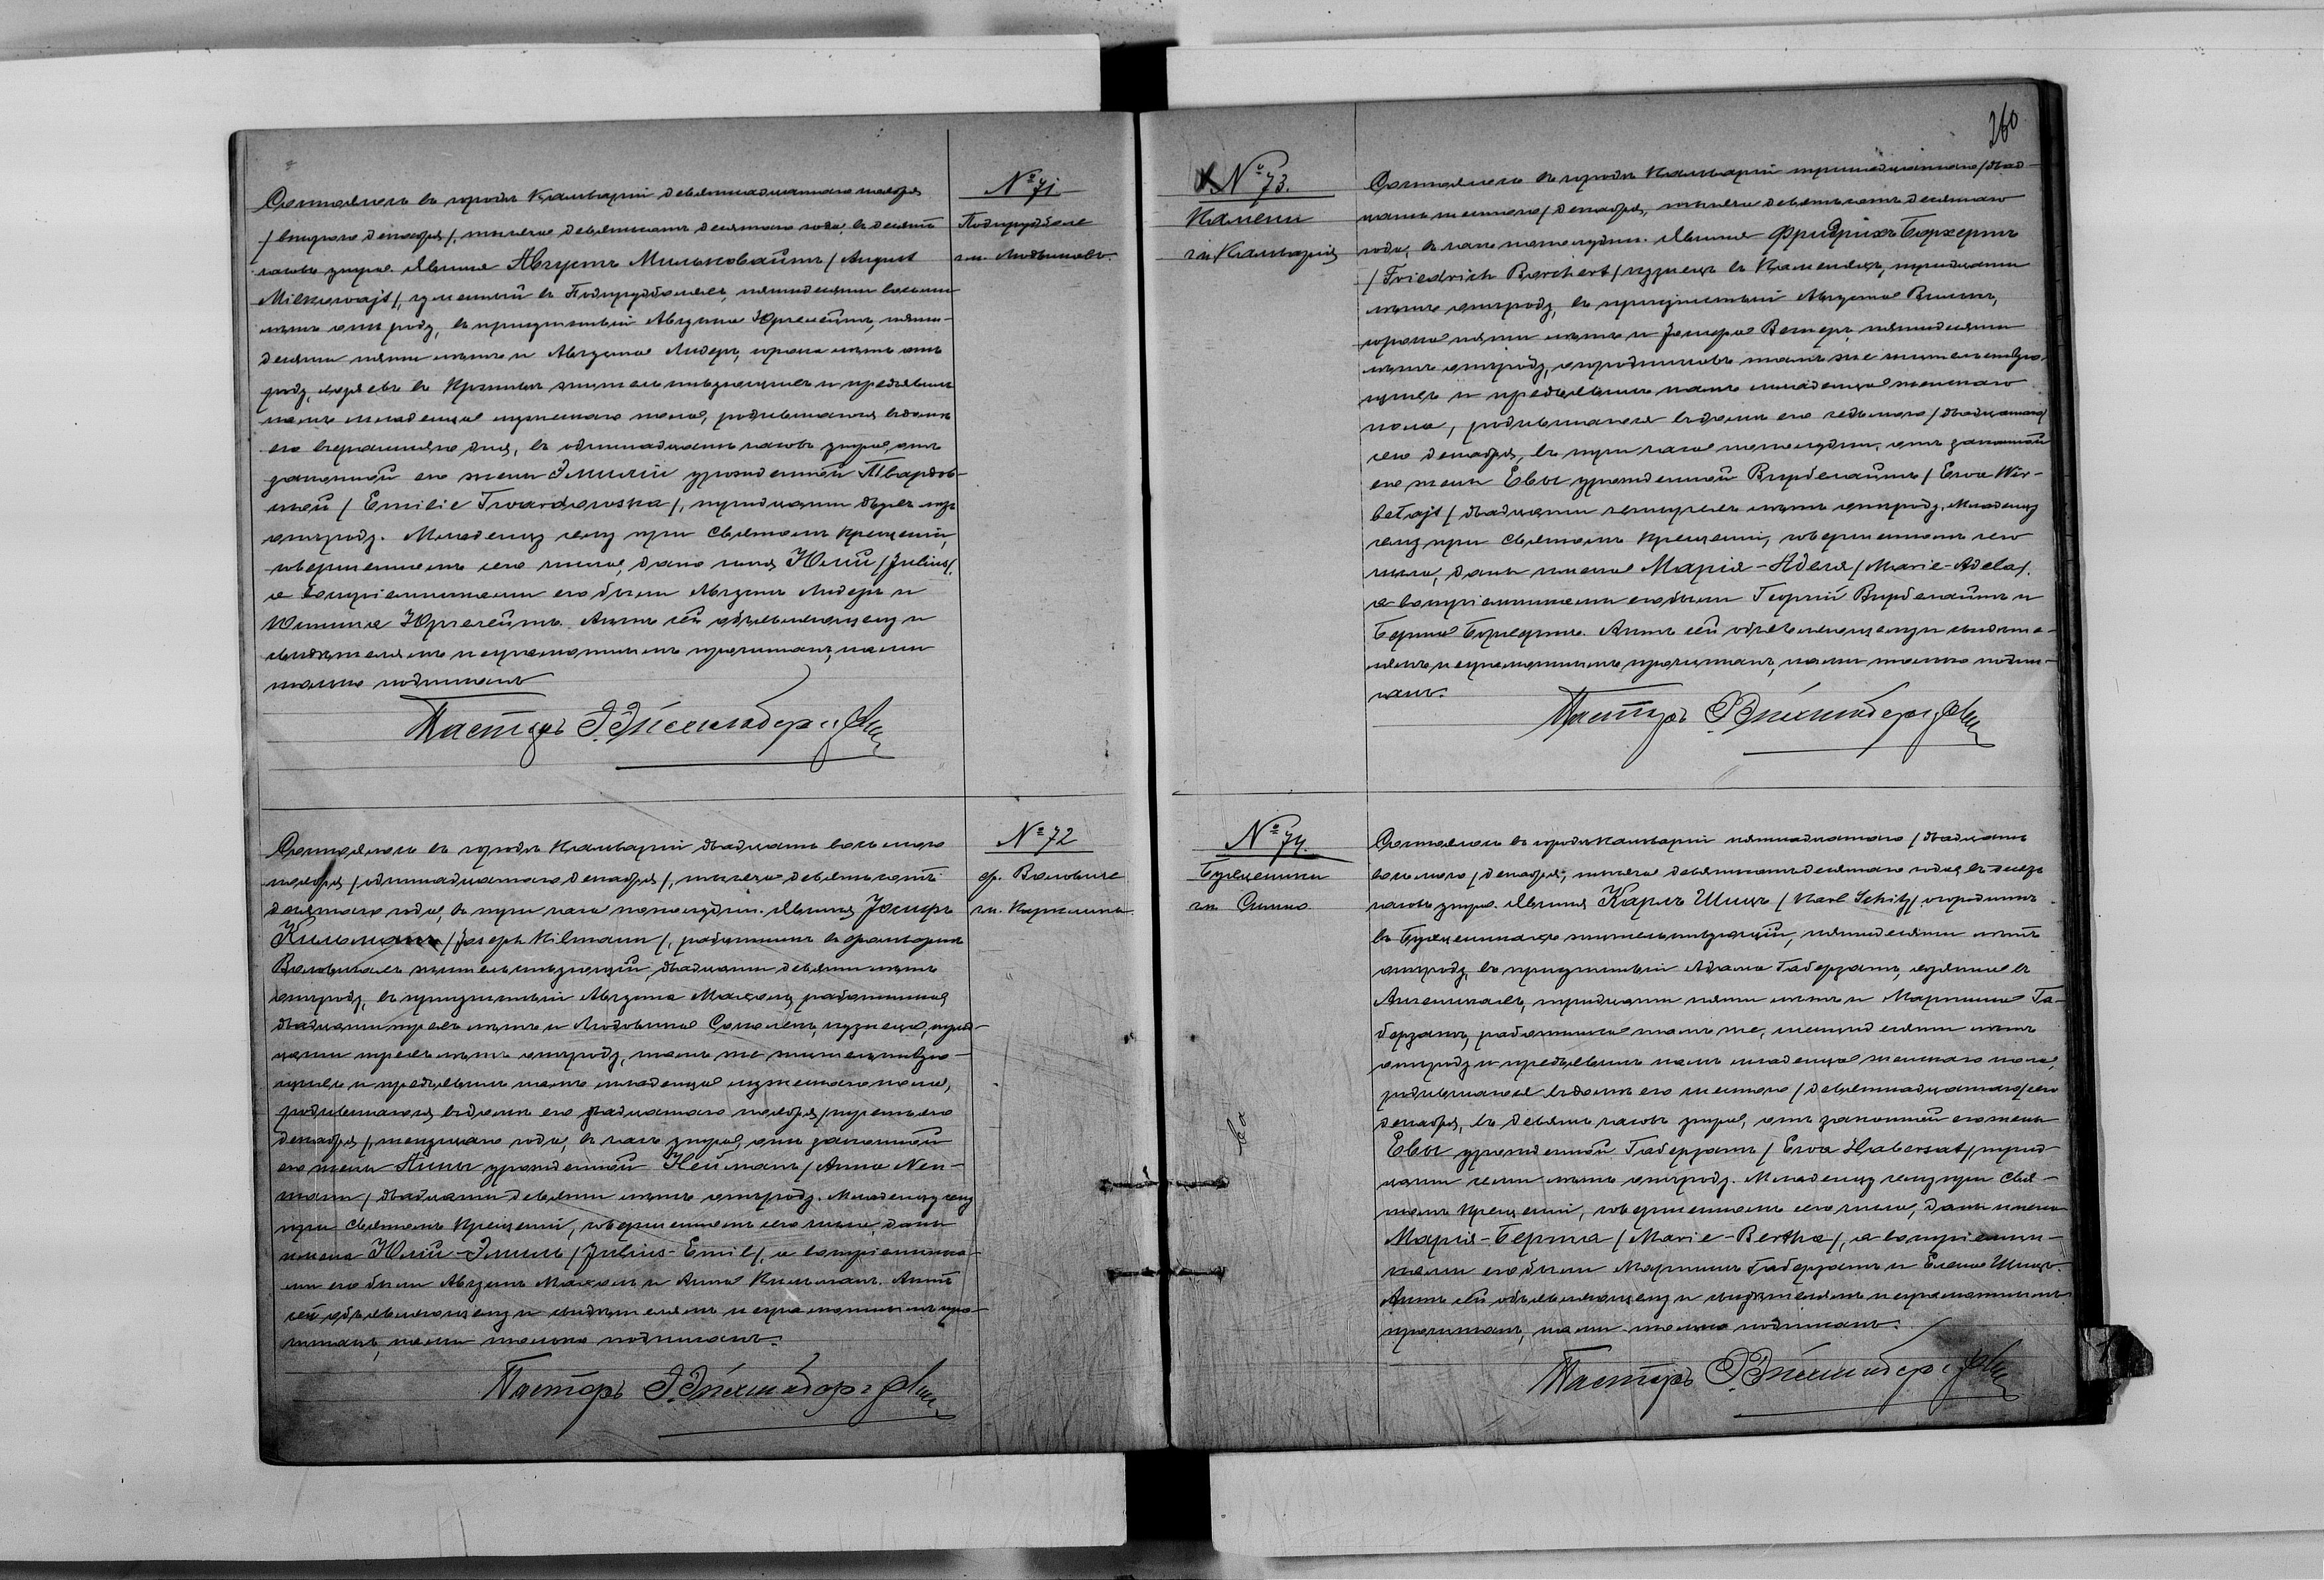 № 71
Подпрудболе
гм. Людвиновъ.
Состоялось въ городѣ Кальваріи девятнадцатаго ноября
/ второго декабря /, тысяча девятьсотъ десятаго года, въ десять
часовъ утра. Явился Августъ Мильковайтъ / August
Milkowajt /, въ пятидесяти восьми
лѣтъ отъ роду, въ присутствіи Августа Юргелейтъ, пяти-
десяти пяти лѣтъ и Августа Лидеръ, сорока лѣтъ отъ
роду, жительствующихъ и предъявилъ
намъ младенца мужескаго пола, родившагося въ домѣ
его вчерашняго дня, въ одиннадцать часовъ утра, отъ
законной его жены Эмиліи урожденной Твардов-
ской / Emilie Twardowska /, тридцати двухъ лѣтъ
отъ роду. Младенцу сему при Святомъ Крещеніи,
совершенномъ сего числа, дано имя Юлій / Julius /,
а воспріемниками его были Августъ Лидеръ и
Юргелейтъ. Актъ сей объявляющему и
свидѣтелямъ неграмотнымъ прочитанъ, нами
только подписанъ
Пасторъ
№ 72
ф. Воловиче
гм.
Состоялось въ городѣ Кальваріи двадцать восьмого
ноября / одиннадцатаго декабря /, тысяча девятьсотъ
десятаго года, въ три часа пополудни. Явился Іосифъ
Кильманъ / Joseph Kilmann /, работникъ въ фольваркѣ
жительствующій, двадцати девяти лѣтъ
отъ роду, въ присутствіи Августа работника,
двадцати трехъ лѣтъ и Людовика кузнеца, трид-
цати трехъ лѣтъ отъ роду, тамъ же жительствую-
щихъ и предъявилъ намъ младенца мужескаго пола,
родившагося въ домѣ его двадцатаго ноября / третьяго
декабря /, текущаго года, въ часъ утра, отъ законной
его жены Анны урожденной Нейманъ / Anna Neu-
mann / двадцати девяти лѣтъ отъ роду. Младенцу сему
при Святомъ Крещеніи, совершенномъ сего числа, даны
имена Юлій-Эмиль / Julius-Emil /, а воспріемника-
ми его были Августъ и Анна Кильманъ. Актъ
сей объявляющему и свидѣтелямъ неграмотнымъ про-
читанъ, нами только подписанъ.
Пасторъ
260
№ 73.
Камени
гм. Кальварія
Состоялось въ городѣ Кальваріи тринадцатаго / двад-
цать шестого / декабря, тысяча девятьсотъ десятаго
года, въ часъ пополудни. Явился Фридрихъ Борхертъ
/ Friedrich Borchert / кузнецъ въ тридцати
лѣтъ отъ роду, въ присутствіи Августа
сорока пяти лѣтъ и Іосифа пятидесяти
лѣтъ отъ роду, огородниковъ тамъ же жительствую-
щихъ и предъявилъ намъ младенца женскаго
пола, родившагося въ домѣ его седьмого / двадцатаго /
сего декабря, въ три часа пополудни, отъ законной
его жены Евы урожденной Вирбелайтъ / Ewa Wir-
bełajt / двадцати четырехъ лѣтъ отъ роду. Младенцу
сему при Святомъ Крещеніи, совершенномъ сего
числа, даны имена Марія-Аделя / Marie-Adela /,
а воспріемниками его были Георгій Вирбелайтъ и
Берта Борхертъ. Актъ сей объявляющему и свидѣте-
лямъ неграмотнымъ прочитанъ, нами только подпи-
санъ.
Пасторъ
№ 74.
гм. Симно
Состоялось въ городѣ Кальваріи пятнадцатаго / двадцать
восьмого / декабря, тысяча девятьсотъ десятаго года, въ десять
часовъ утра. Явился Карлъ Шицъ / Karl Schitz / огородникъ
въ жительствующій, пятидесяти лѣтъ
отъ роду, въ присутствіи Адама Габерзатъ, въ
тридцати пяти лѣтъ и Мартина Га-
берзатъ, работника тамъ же, шестидесяти лѣтъ
отъ роду и предъявилъ намъ младенца женскаго пола,
родившагося въ домѣ его шестого / девятнадцатаго / сего
декабря, въ девять часовъ утра, отъ законной его жены
Евы урожденной Габерзатъ / Ewa Habersat / трид-
цати семи лѣтъ отъ роду. Младенцу сему при Свя-
томъ Крещеніи, совершенномъ сего числа, даны имена
Марія-Берта / Marie-Bertha /, а воспріемни-
ками его были Мартинъ Габерзатъ и Елена Шицъ.
Актъ сей объявляющему и свидѣтелямъ неграмотнымъ
прочитанъ, нами только подписанъ.
Пасторъ